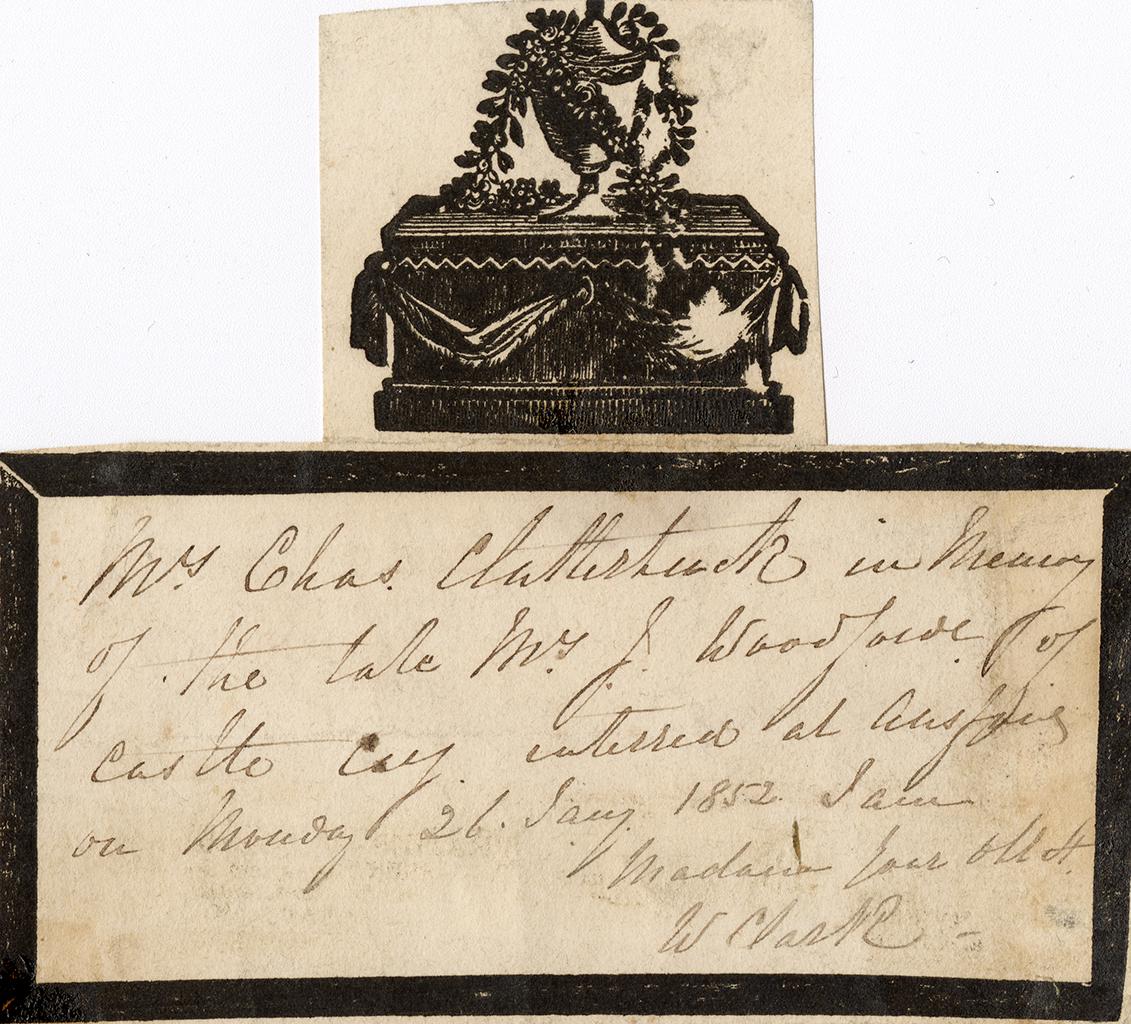 Mrs Chas. Clutterbuck in Memory
of the late Mrs J. Woodforde of
Castle Cary interred at Ansford
on Monday 26. Jany. 1852 I am
Madam your Obt St.
W Clark